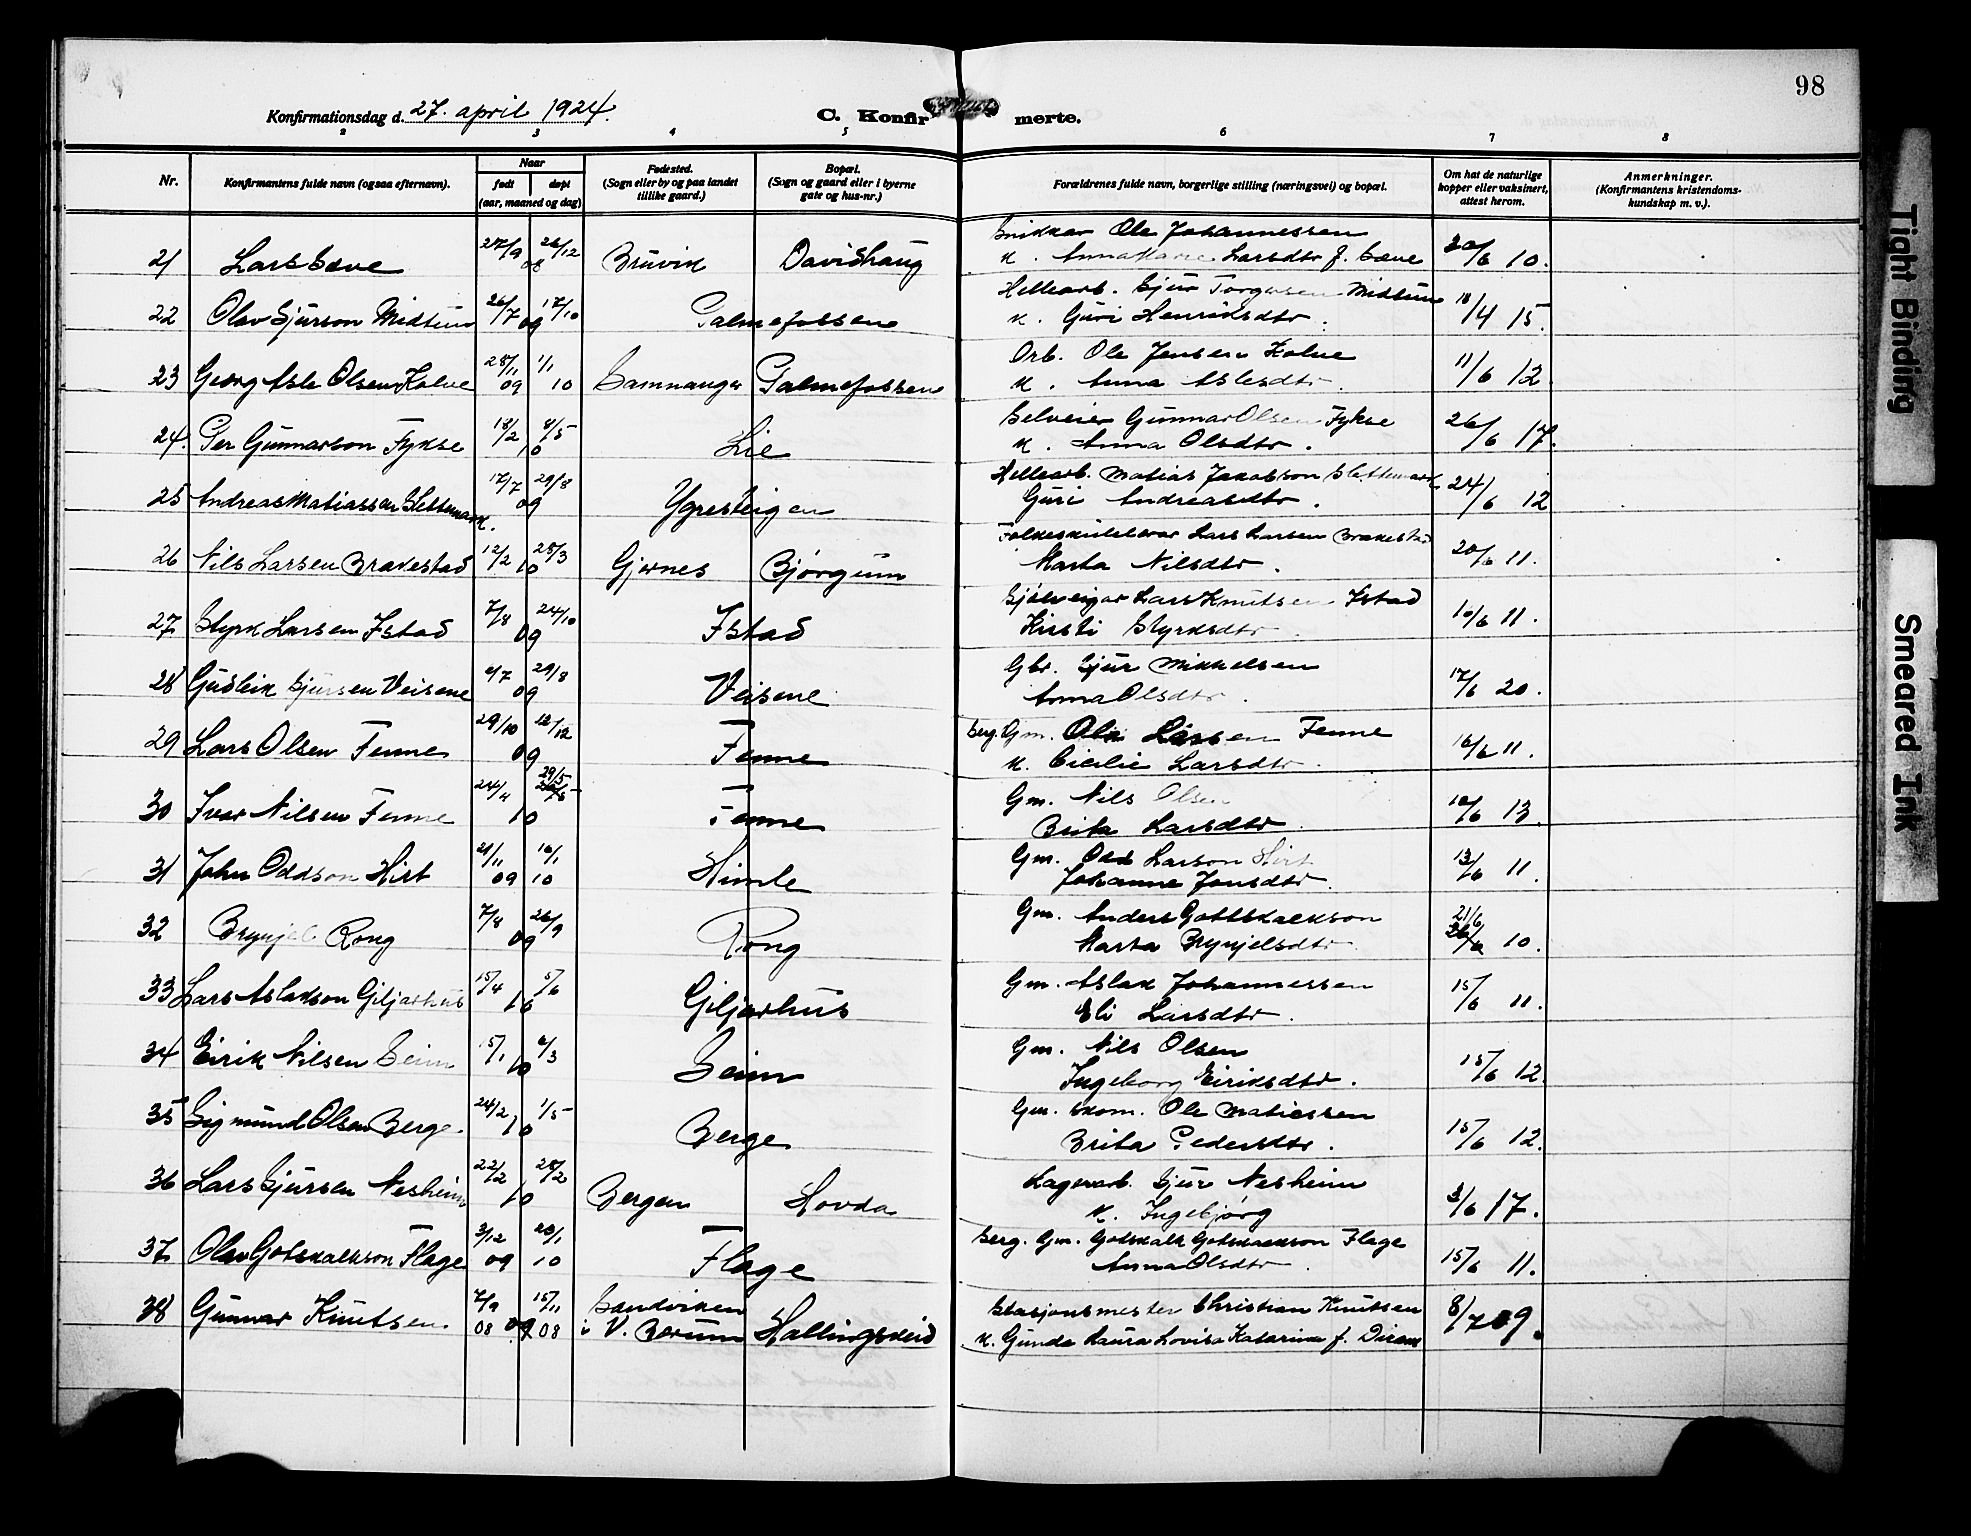 98
Konfirmationsdag d. 27. april 1924.
C. Konfirmerte.
2 3 4 5 6 7 8
Nr.
Konfirmantens fulde navn (ogsaa efternavn).
Naar
født døpt
(aar, maaned og dag)
Fødested.
(Sogn eller by og paa landet
tillike gaard.)
Bopæl.
(Sogn og gaard eller i byerne
gate og hus-nr.)
Forældrenes fulde navn, borgerlige stilling (næringsvei) og bopæl.
Om hat de naturlige
kopper eller vaksinert,
attest herom.
Anmerkninger.
(Konfirmantens kristendoms-
kundskap m. v.).
21 Lars Sæve 27/9 26/12 08 Bruvik Davidhaug
Snikkar Ole Johannessen
k. Anna Marie Larsdtr f. Sæve 10.
22 Olav Sjurson Midtun 26/7 17/10 09 Palmefossen
Hellearb. Sjur Torgersen Midtun
k. Guri Henriksdtr. 18/4 15.
23 Georg Asle Olsen Kolve 28/11 09 1/1 10 Samnanger Palmefossen
Arb. Ole Jensen Kolve
k. Anna Aslesdtr. 11/6 12
24. Per Gunnarson Fykse 18/2 8/5 10 Lie
Selveier Gunnar Olsen Fykse
k. Anna Olsdtr. 26/6 17.
25 Andreas Matiassen Slettemark. 17/7 29/8 09 Ygresteigen
Hellearb. Matias Jakobson Slettemark
Guri Andreasdtr. 24/6 12
26 Nils Larsen Brakestad 12/2 28/3 10 Gjernes Bjørgum
Lars Larsen Brakestad
Marta Nilsdtr. 20/6 11.
27 Styrk Larsen Istad 7/8 24/10 09 Istad
Sjølveigar Lars Knutsen Istad
Kristi Styrksdtr. 10/6 11.
28 Gudleik Sjursen Veisene 29/8 09 Veisene
Gbr. Sjur Mikkelsen
Anna Olsdtr. 17/6 20.
29 Lars Olsen Fenne 29/10 12/12 09 Fenne
Berg. Gm. Ole Larsen Fenne
k. Cicilie Larsdtr. 16/6 11.
30 Ivar Nilsen Fenne 24/4 29/5 10 Fenne
Gm. Nils Olsen
Brita Larsdtr. 13.
31 John Oddson Hirt 21/11 09 16/1 10 Himle
Gm. Odd Larson Hirt
Johanne Jonsdtr. 13/6 11.
32 Brynjel Rong 7/8 26/9 09 Rong
Gm. Anders Gottskalkson
Marta Brynjelsdtr. 21/6 10.
33 Lars Aslakson Giljarhus 15/4 5/6 10 Giljarhus
Gm. Aslak Johannessen
Eli Larsdtr. 15/6 11.
34 Eirik Nilsen Seim 15/1 6/3 10 Seim
Gm. Nils Olsen
Ingeborg Eiriksdtr. 15/6 12.
35 Sigmund Olsen Berge. 24/2 1/5 10 Berge
Gm. skom. Ole Matiessen
Brita Pedersdtr. 15/6 12.
36 Lars Sjursen Nesheim 22/2 28/2 10 Bergen Hovda
Lagerarb. Sjur Nesheim
k. Ingebjørg 17.
37 Olav Gotskalkson Flage 3/12 09 20/1 10 Flage
Berg. Gm. Gotskalk Gotskalkson Flage
Anna Olsdtr. 15/6 11.
38 Gunnar Knutsen. 7/9 08 15/11 08 Sandviken
i V. Bærum Hallingskeid
Stasjonsmester Christian Knutsen
k. Gunda Laura Lovisa Katarina f. 8/7 09.
Tight Binding
Smeared Ink